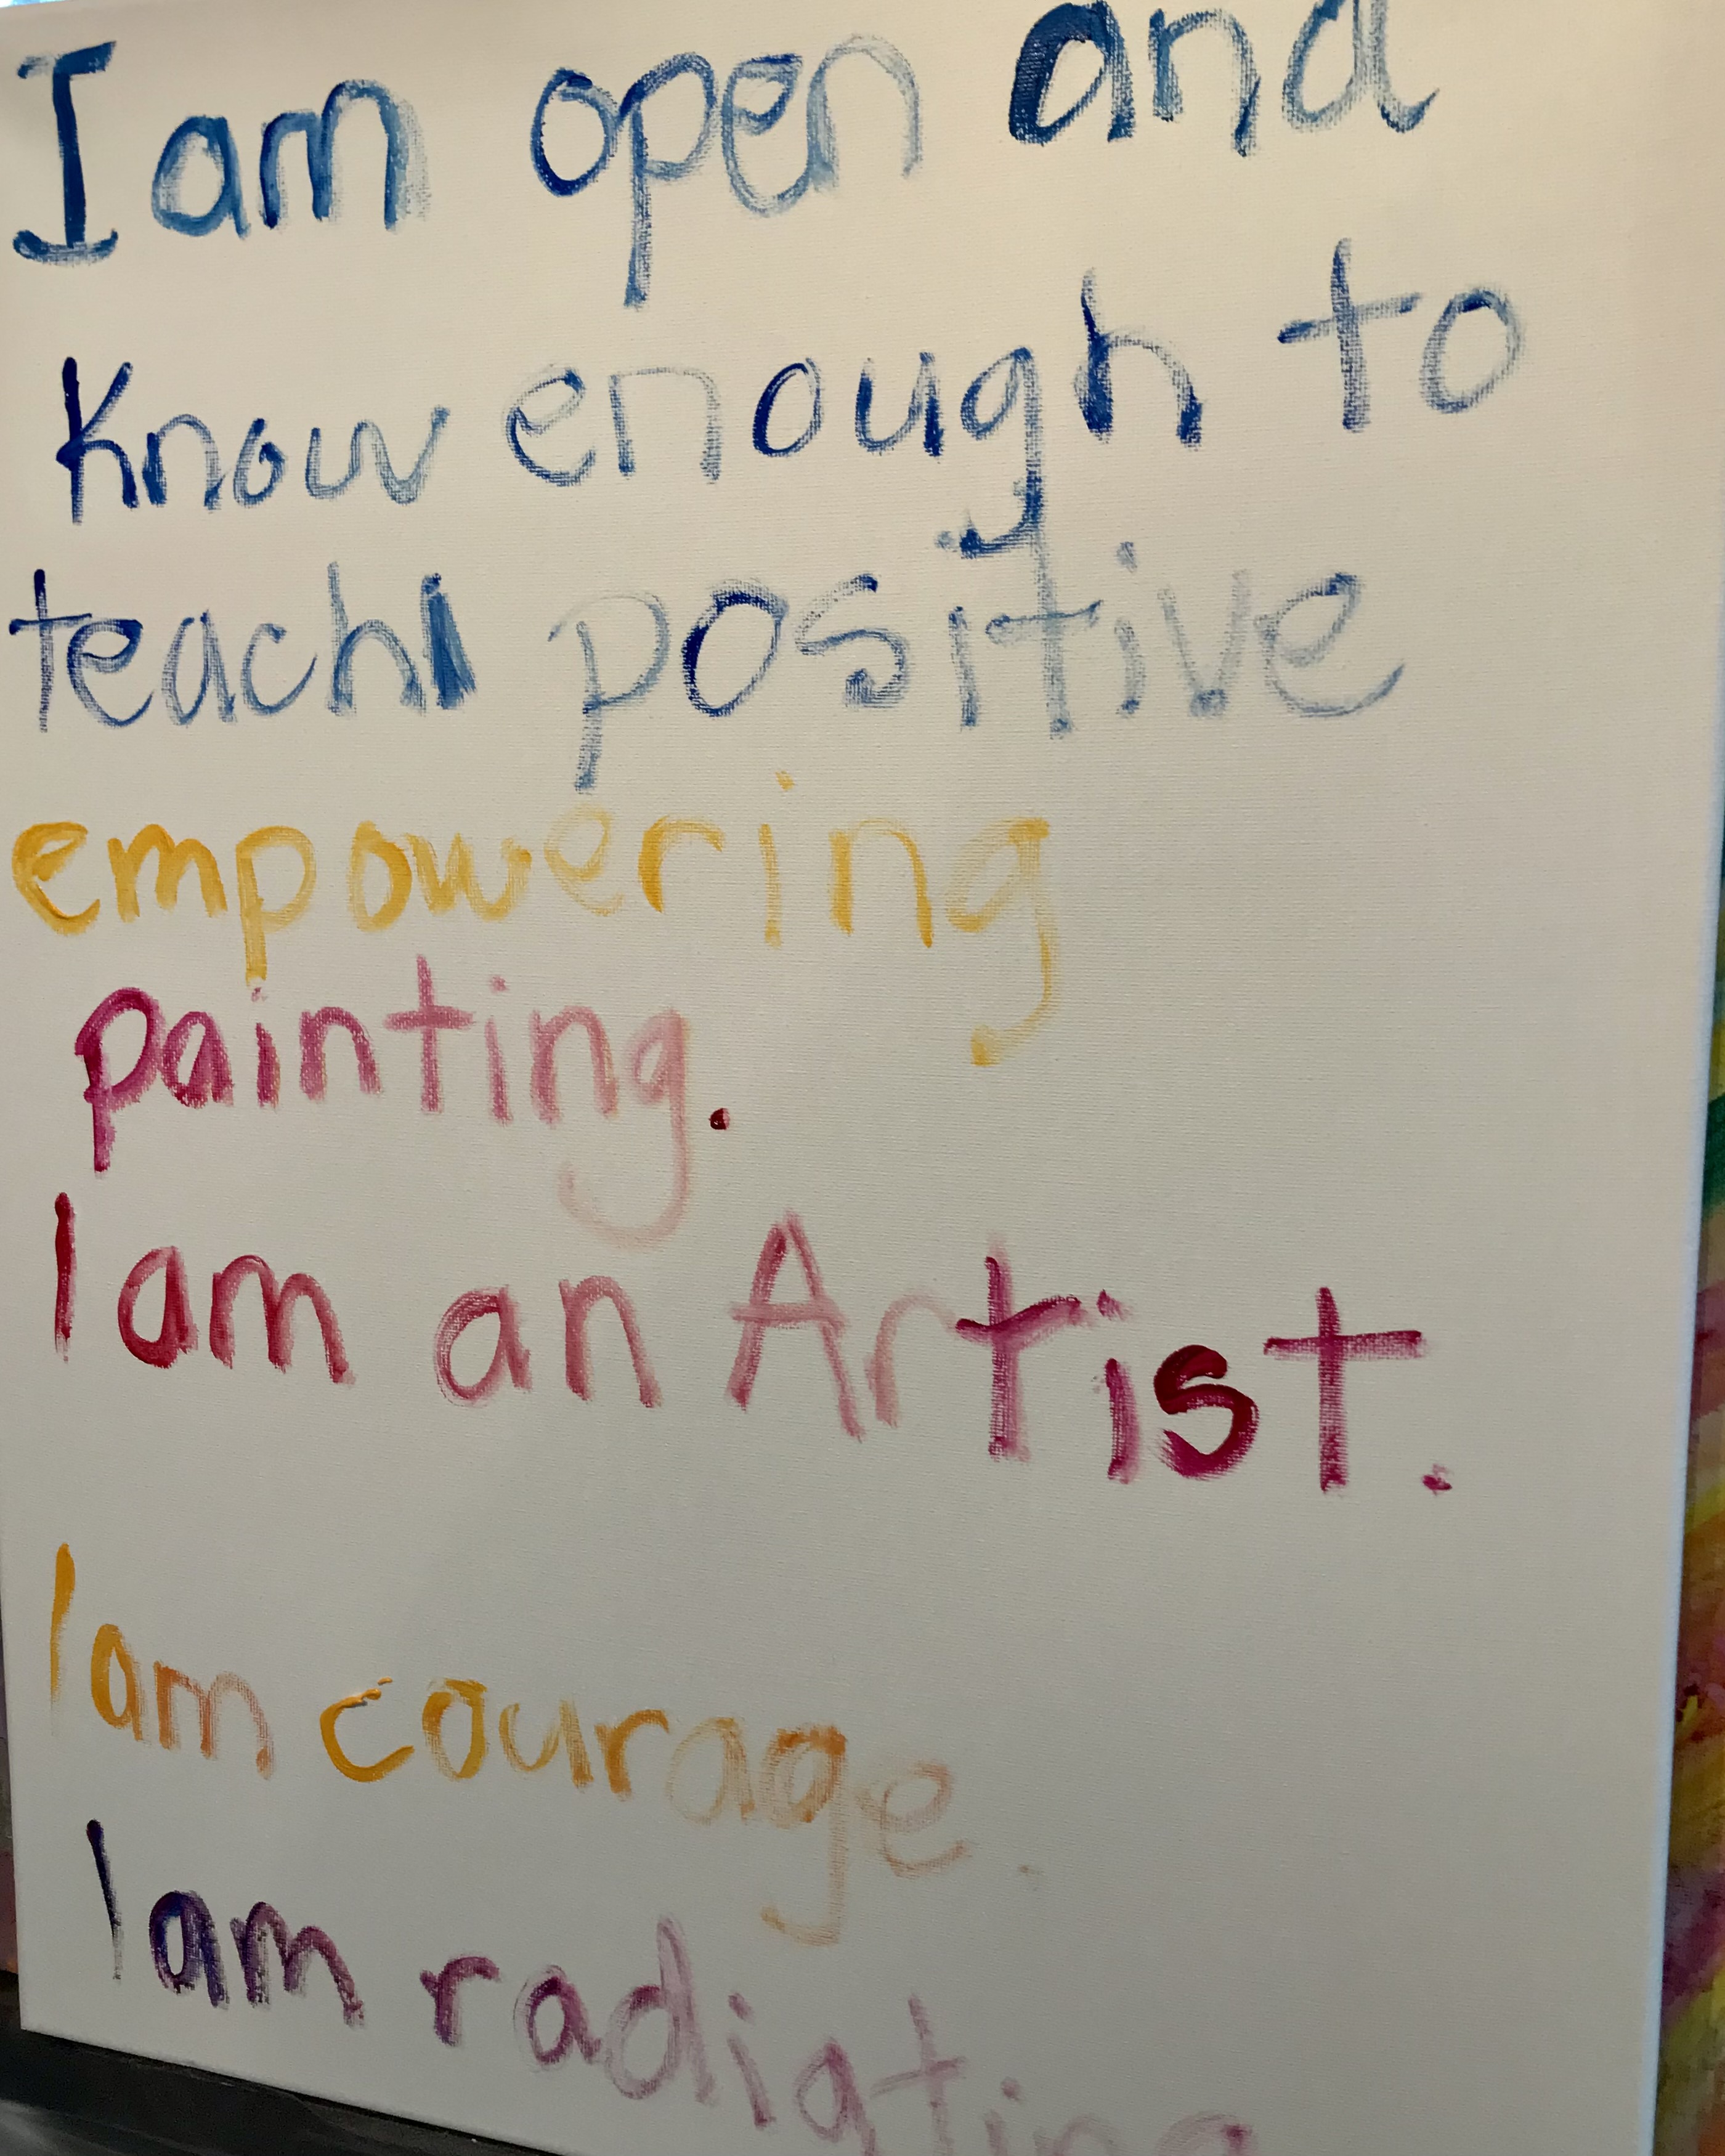 I am open and
Know enough to
teach positive
empowering
painting.
I am an Artist.
I am courage.
I am radiating